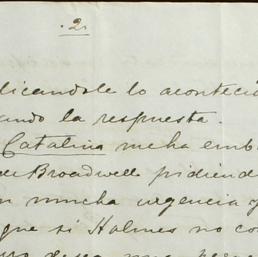 .2.
licandole lo acontecid
ando la respuesta.
Catalina me ha emb
de Broadwell pidiend
n mucha urgencia y
que si Holmes no co